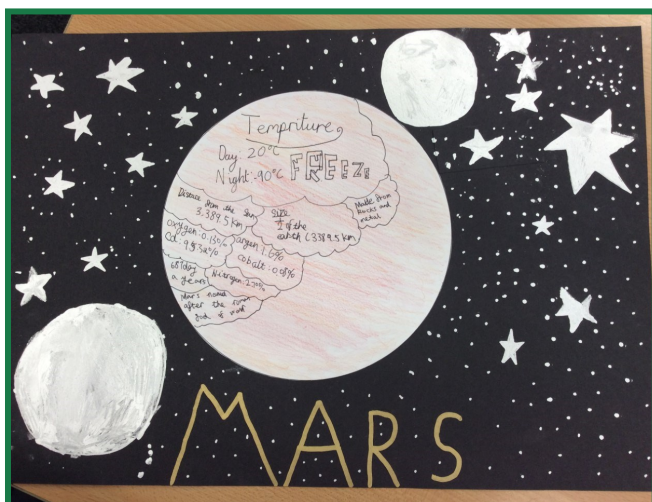 Tempriture
Day: 20°C
Night: -90°C
FREEZ
Distance from the Sun
3,389.5 km
Size
½ of the
earth (3389.5 km)
Made from
Rocks and
metal
oxygen: 0.13%
argen 1.6%
cobalt: 0.08%
a years
Nitrogen
Mars named
after the roman
god of war
MARS